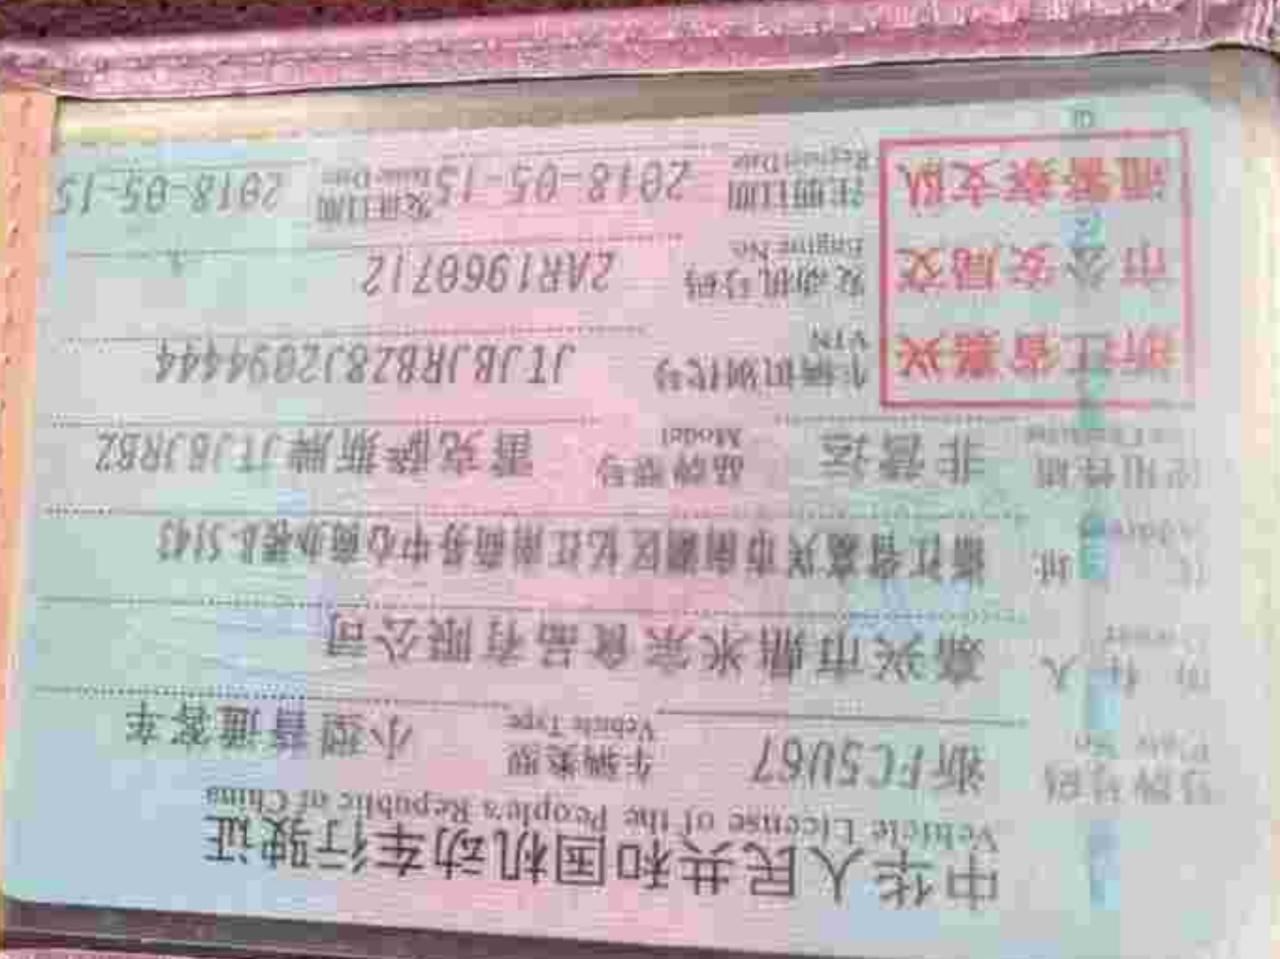 中华人民共和国机动车行驶证
Vehicle License of the People's Republic of China
号牌号码 浙FC5U67 车辆类型 小型普通客车
Plate No. Vehicle Type
所有人 嘉兴市鼎米宗食品有限公司
Owner
住址 浙江省嘉兴市南湖区长江南商务中心商办楼B-5143
Address
使用性质 非营运 品牌型号 雷克萨斯牌JTJBJRBZ
Use Character Model
浙江省嘉兴
市公安局交
通警察支队
车辆识别代号 JTJBJRBZ8J2094444
VIN
发动机号码 2AR1960712
Engine No.
注册日期 2018-05-15 发证日期 2018-05-15
Register Date Issue Date